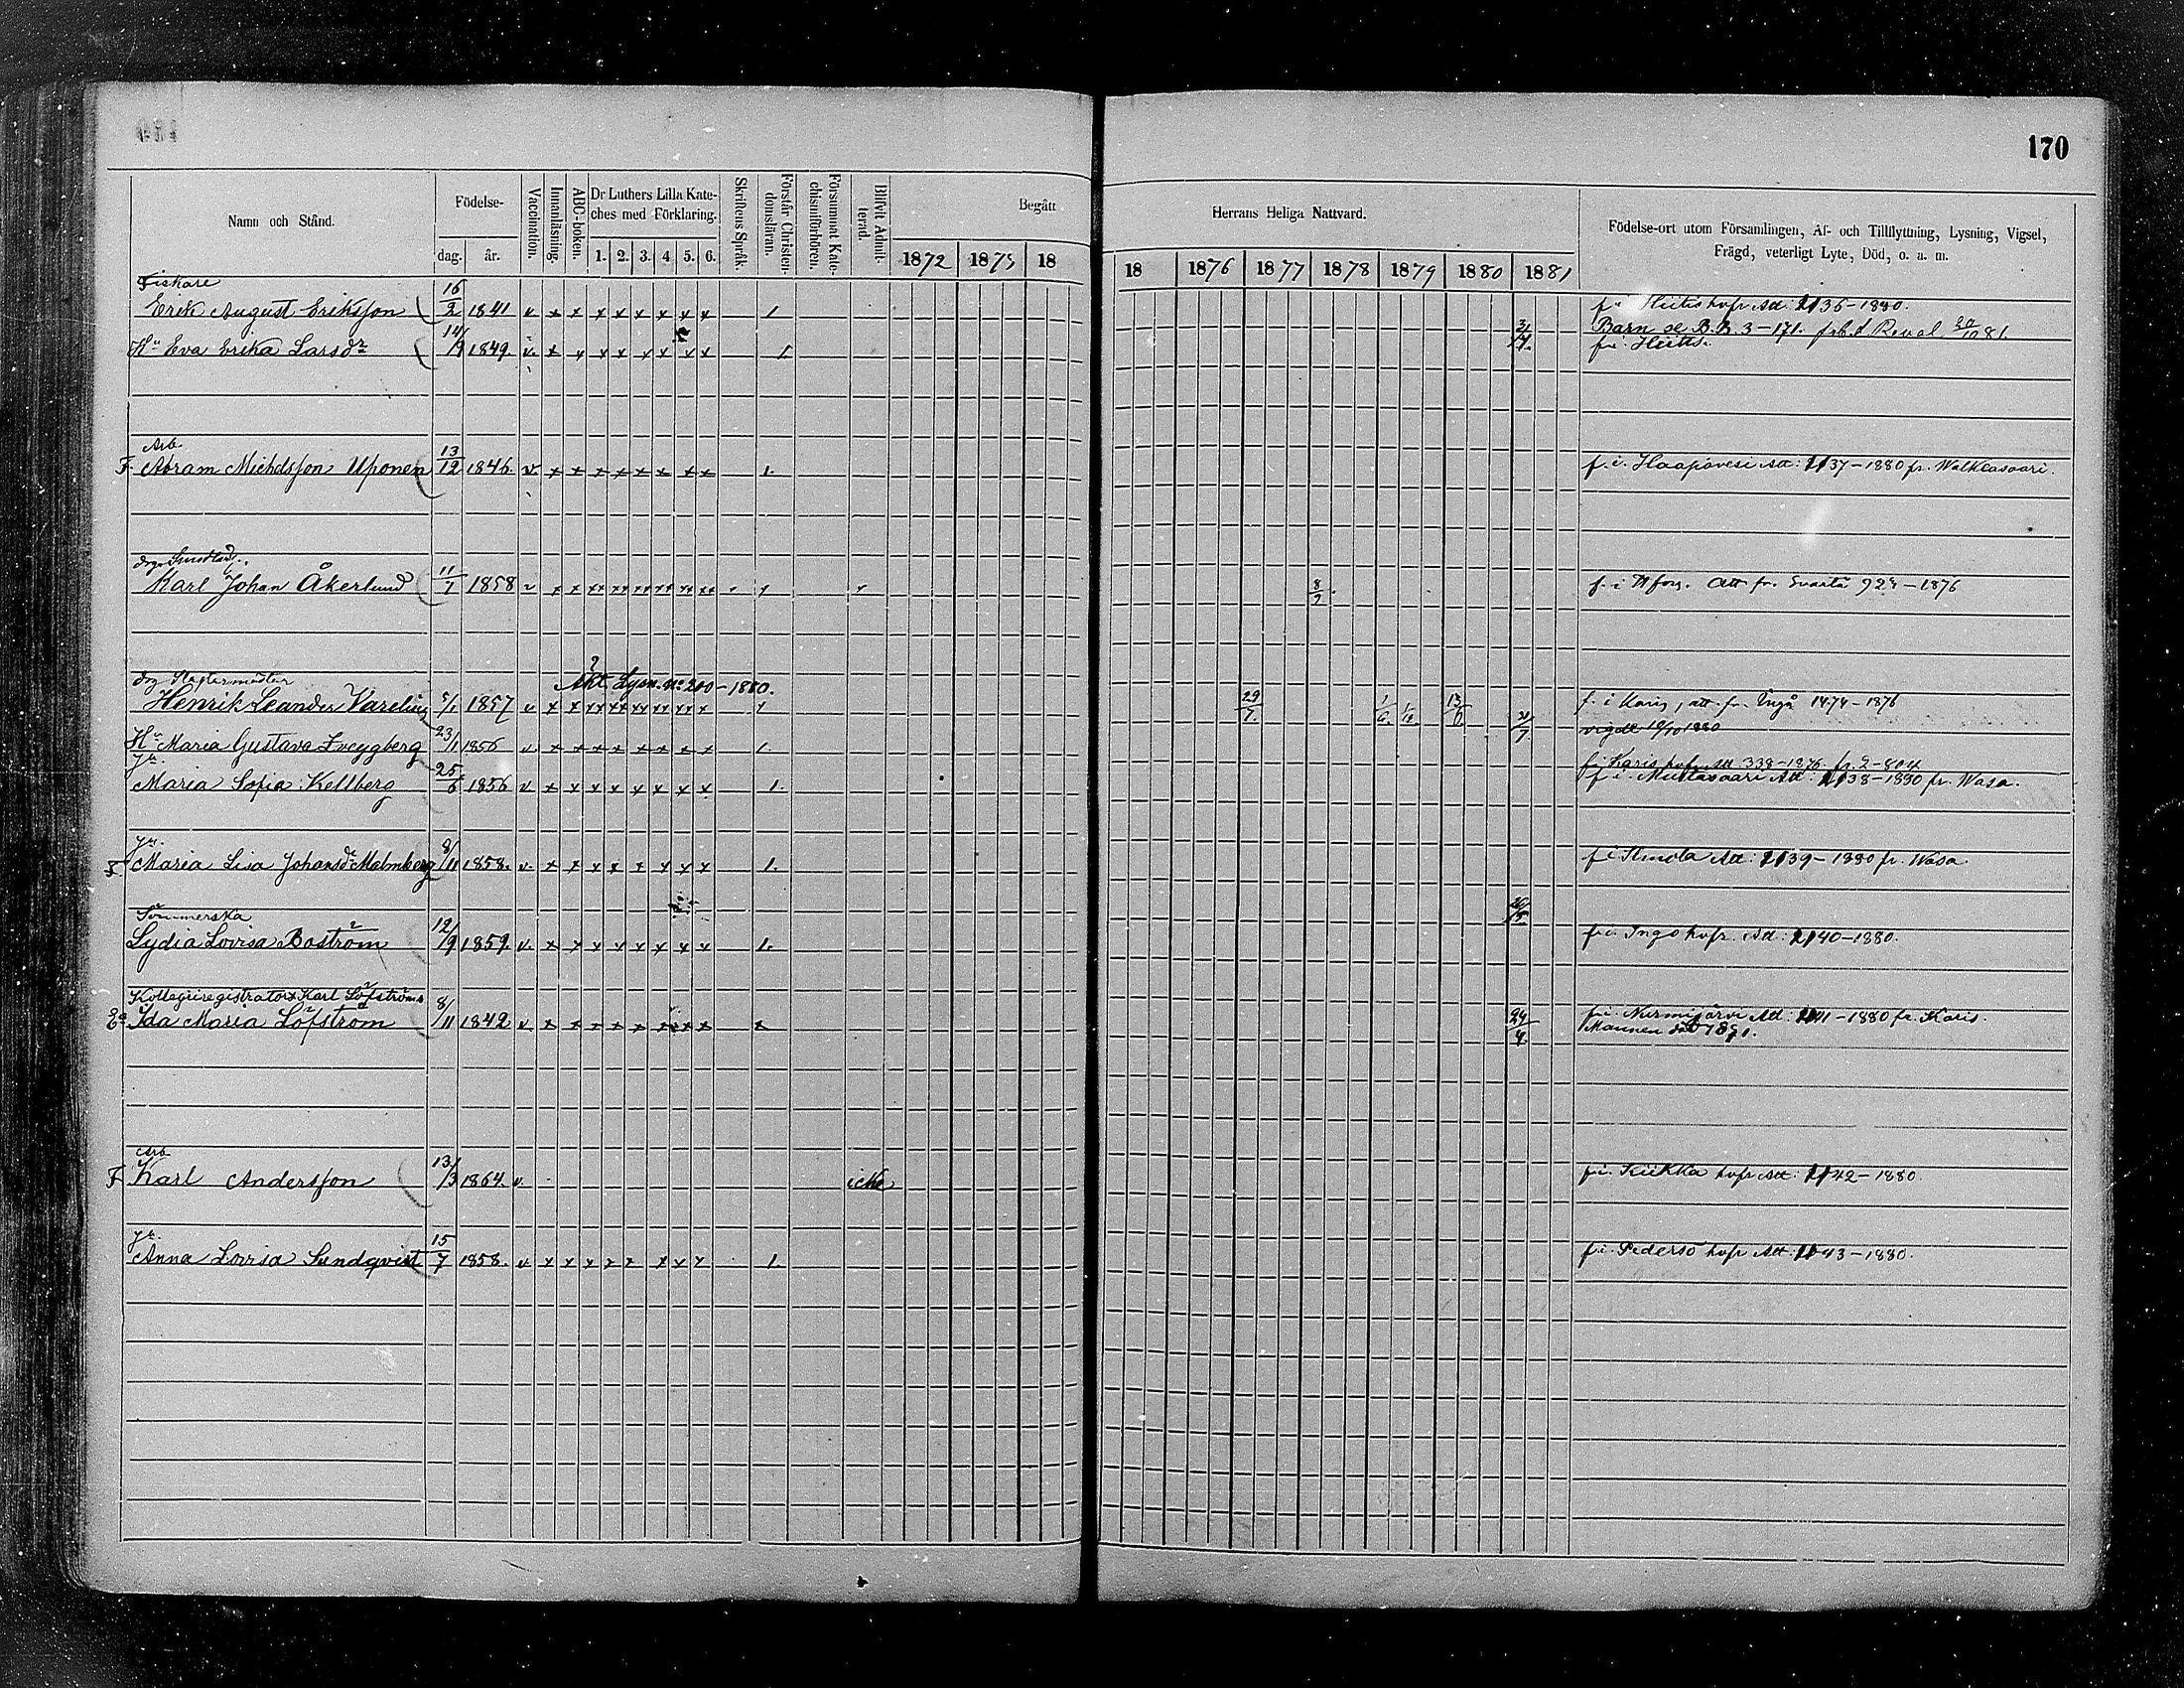 170
Namn och Stånd.
Födelse-
dag. år.
Vaccination.
Innanläsning.
ABC-boken.
Dr Luthers Lilla Kate-
ches med Förklaring.
1. 2. 3. 4 5. 6.
Skriftens Språk.
Förstår Christen-
domsläran.
Försummat Kate-
chismiförhören.
Blifvit Admit-
terad.
Begått
1872 1875 18
Herrans Heliga Nattvard.
18 1876 1877 1878 1879 1880 1881
Födelse-ort utom Församlingen, Af- och Tillflyttning, Lysning, Vigsel,
Frägd, veterligt Lyte, Död, o. a. m.
Fiskare
Erik August Eriksson 16/2 1841 v x x x x x x x x 1 f. i Hiitis hofr Att: 2136-1880.
Barn se B.B. 3-171.
Hu Eva Erika Larsdr 14/9 1849. v. x x x x x x x x 1 f. i. Hiitis.
Arb.
F. Abram Michelsson Uponen 13/12 1846. v. x x x x x x x x 1. f. i. Haapavesi Att: 2137-1880 fr.
Karl Johan Åkerlund 11/1 1858 v x x xx xx xx xx xx xx 8/9 Att fr. 1876
Henrik Leander 5/1 1857 v x x xx xx xx xx xx x 29/7. 13/6 f. i Karis, att. fr. Ingå 1474-1876
Akt. Lysn. no 200-1880.
vigde 10/10 1880
Hu Maria Gustava 23/1 1856 v. x x x x x x x x 1.
f. i. Karis hofr Att 338-1876.
Maria Sofia Kellberg 25/6 1856 v x x x x x x x x 1. f. i. Mustasaari Att: 2138-1880 fr. Wasa.
F Maria Lisa Johansdr Malmberg 8/11 1858. v. x x x x x x x x 1. f. i Ilmola Att: 2139-1880 fr. Wasa.
Sömmerska
Lydia Lovisa Boström 12/9 1859. v. x x x x x x x x 1. f. i. Ingo hofr. Att: 2140-1880.
Kollegiiregistrator Karl Löfströms
Ea Ida Maria Löfström 8/11 1842 v x x x x x x x x x 24/4. f. i. Nurmijärvi Att: 2141-1880 fr. Karis.
Mannen död 1871.
Arb
F Karl Andersson 13/3 1864. v. icke f. i. Kiikka hofr Att: 2142-1880
Anna Lovisa Sundqvist 15/7 1858. v x x x x x x x x 1. f. i. Pedersö hofr Att: 2143-1880.